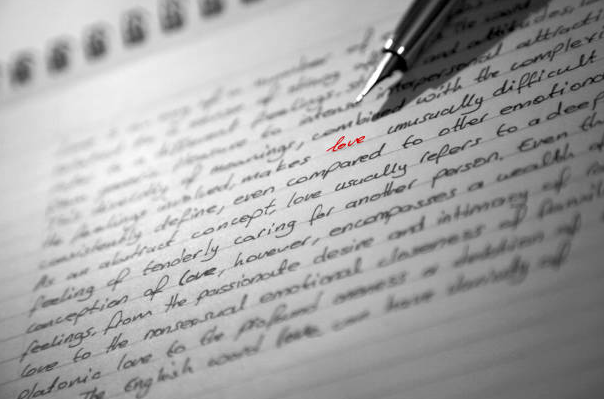 number of The word
different feelings, and attitudes,
to intense interpersonal attracti
diversity of meanings, combined with the complexi
the feelings involved, makes love unusually difficult
consistently define, even compared to other emotiona
As an abstract concept, love usually refers to a deep
feeling of tenderly caring for another person. Even th
conception of love, however, encompasses a wealth of
feelings, from the passionate desire and intimacy of
love to the nonsexual emotional closeness of famili
Platonic love to the profound oneness or devotion of
The English word love can have